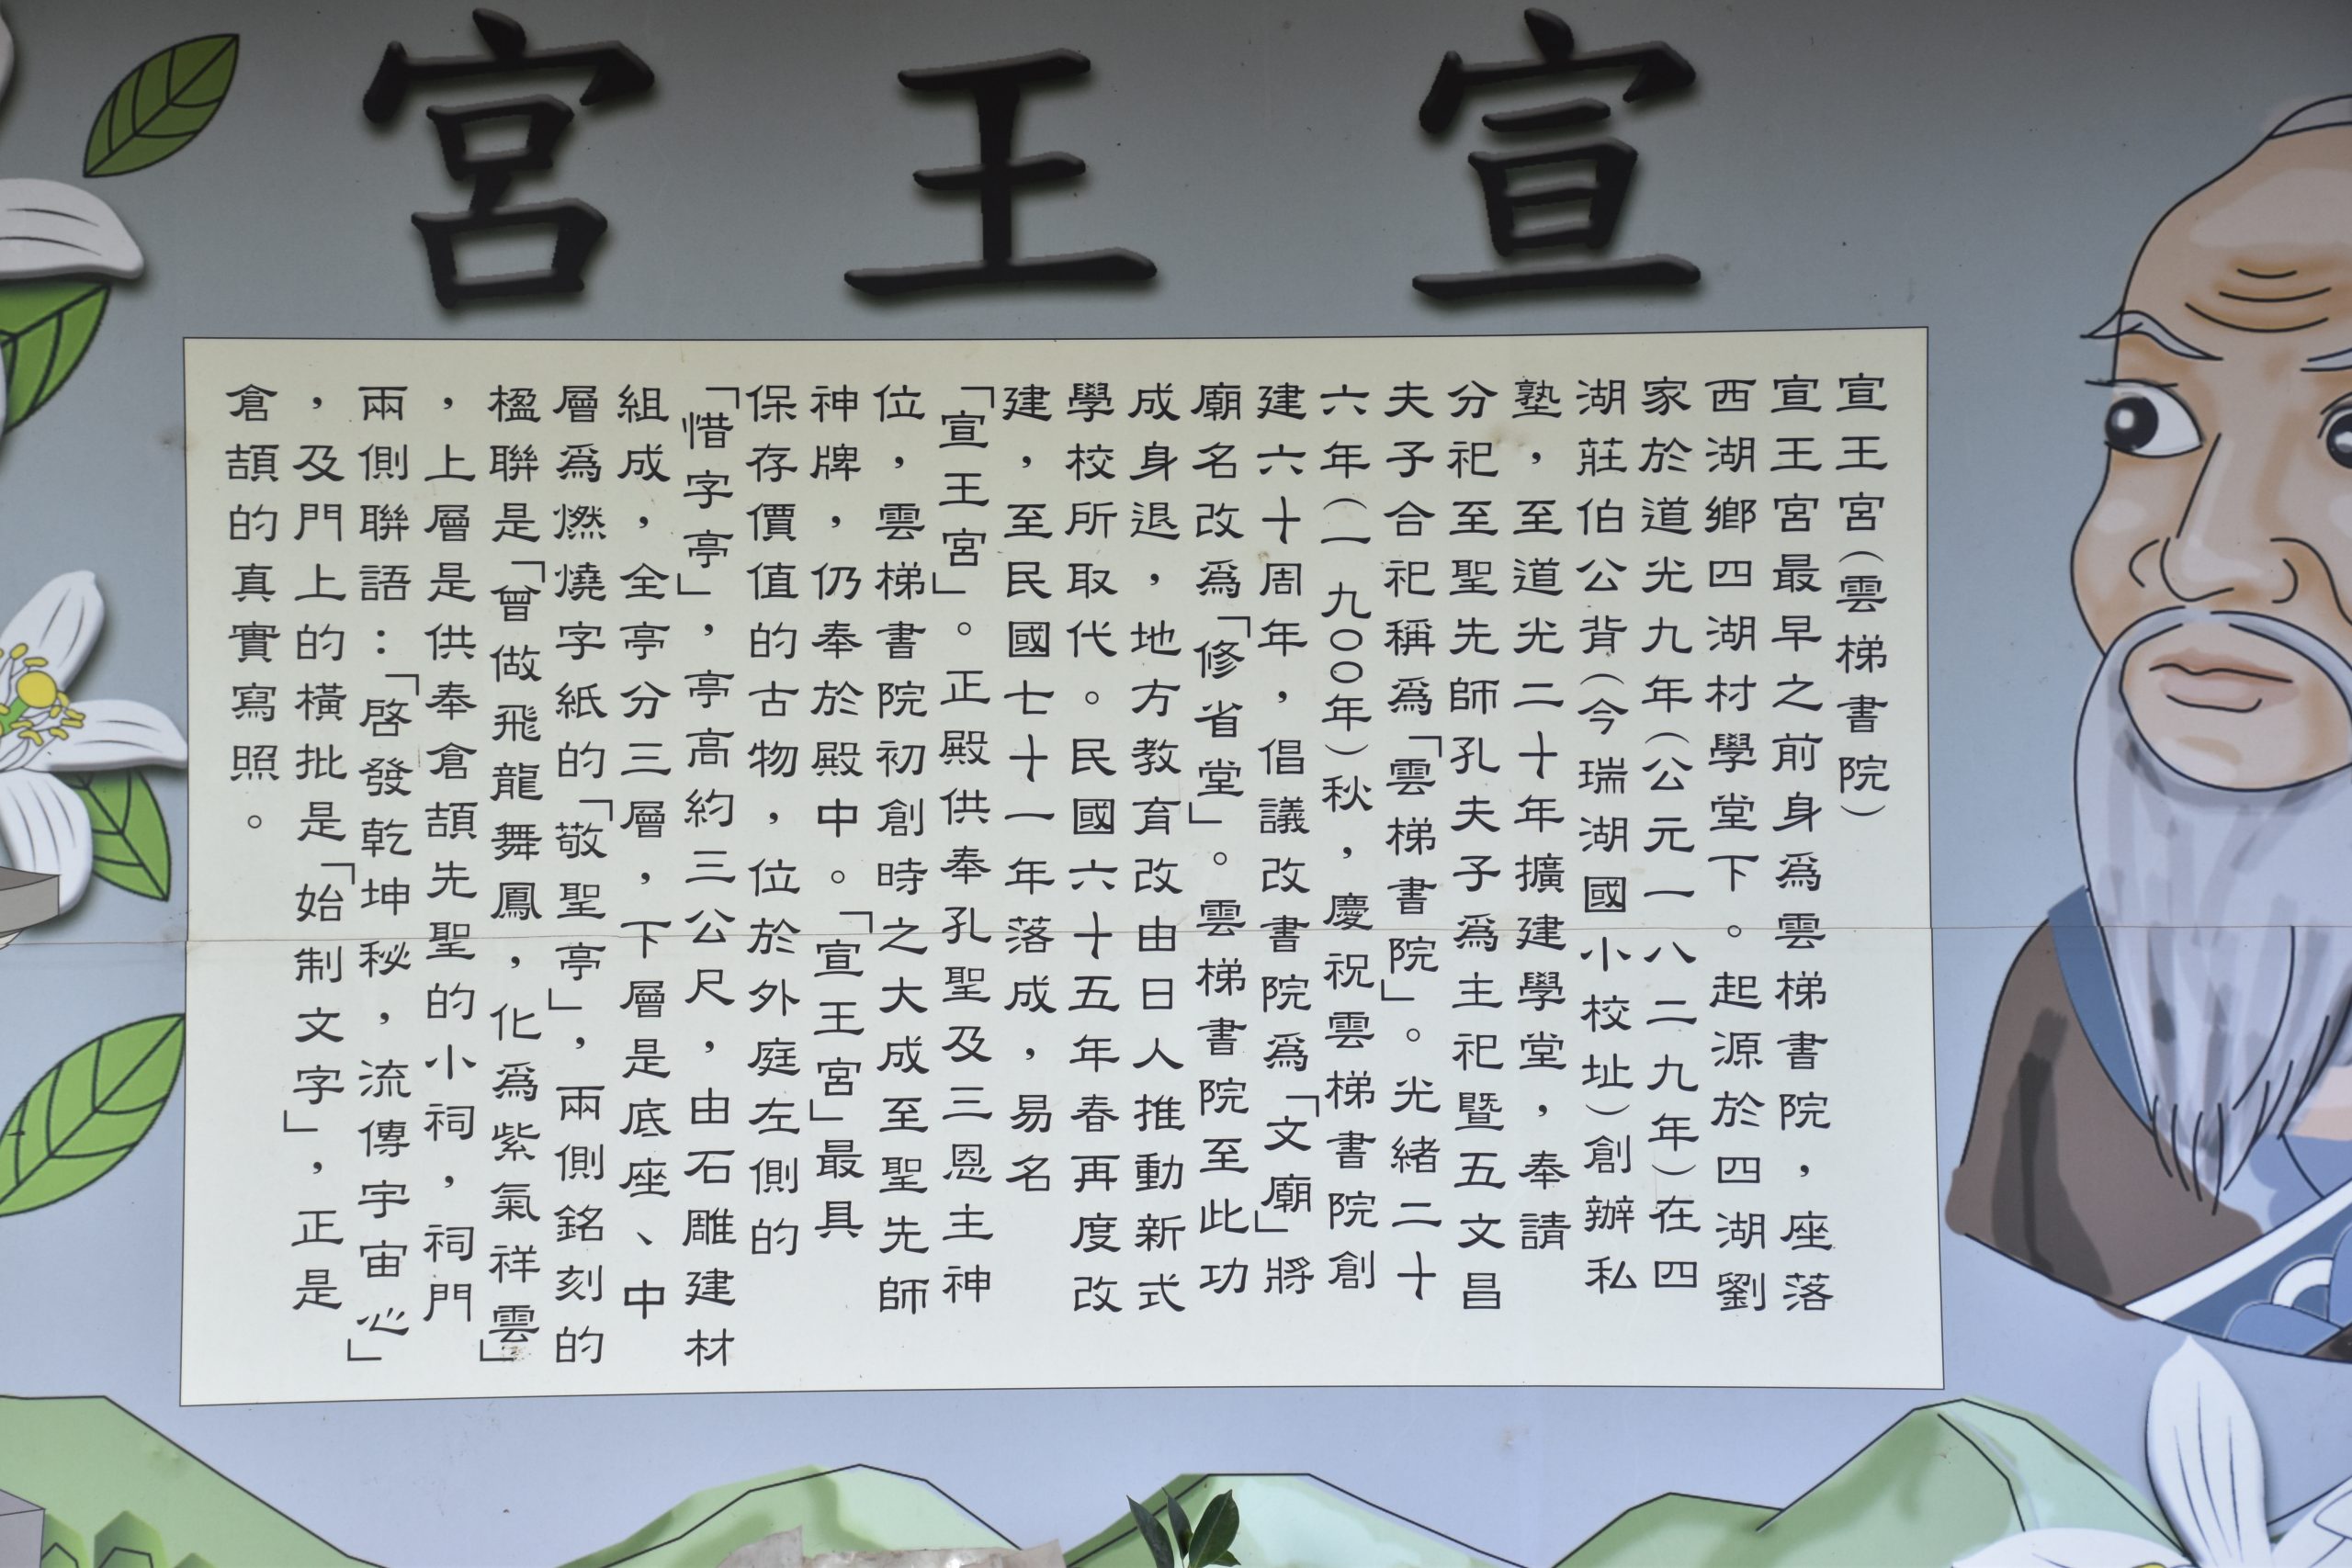 宣王宮
宣王宮（雲梯書院）
宣王宮最早之前身為雲梯書院，座落
西湖鄉四湖村學堂下。起源於四湖劉
家於道光九年（公元一八二九年）在四
湖莊伯公背（今瑞湖國小校址）創辦私
塾，至道光二十年擴建學堂，奉請
分祀至聖先師孔夫子為主祀暨五文昌
夫子合祀稱為「雲梯書院」。光緒二十
六年（一九００年）秋，慶祝雲梯書院創
建六十周年，倡議改書院為「文廟」將
廟名改為「修省堂」。雲梯書院至此功
成身退，地方教育改由日人推動新式
學校所取代。民國六十五年春再度改
建，至民國七十一年落成，易名
「宣王宮」。正殿供奉孔聖及三恩主神
位，雲梯書院初創時之大成至聖先師
神牌，仍奉於殿中。「宣王宮」最具
保存價值的古物，位於外庭左側的
「惜字亭」，亭高約三公尺，由石雕建材
組成，全亭分三層，下層是底座、中
層為燃燒字紙的「敬聖亭」，兩側銘刻的
楹聯是「曾做飛龍舞鳳，化為紫氣祥雲」
，上層是供奉倉頡先聖的小祠，祠門
兩側聯語：「啓發乾坤秘，流傳宇宙心」
，及門上的橫批是「始制文字」，正是
倉頡的真實寫照。